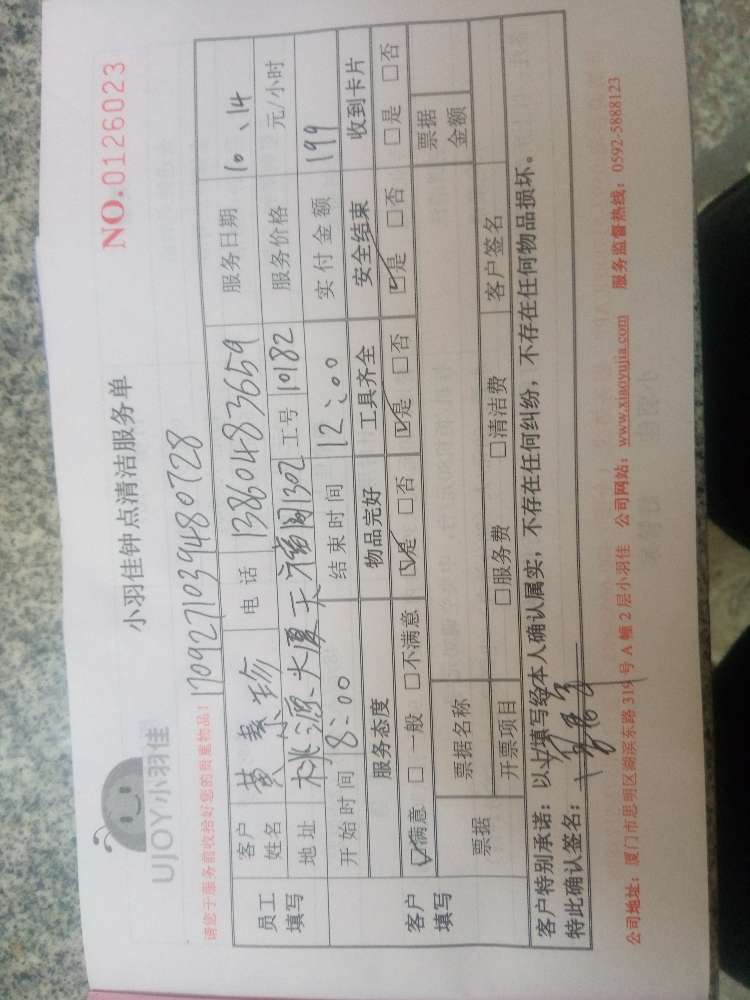 UJOY小羽佳
小羽佳钟点清洁服务单
NO.0126023
请您于服务前收拾好您的贵重物品！
1709271039480728
员工填写
客户姓名 黄素珍 电话 13860483659 服务日期 10、14
地址 桃源大厦天福阁1302 工号 10182 服务价格 元/小时
开始时间 8:00 结束时间 12:00 实付金额 199
客户填写
服务态度 物品完好 工具齐全 安全结束 收到卡片
☑满意 □一般 □不满意 ☑是 □否 ☑是 □否 ☑是 □否 □是 □否
票据 票据名称 票据金额
开票项目 □服务费 □清洁费 客户签名
客户特别承诺：以上填写经本人确认属实，不存在任何纠纷，不存在任何物品损坏。
特此确认签名：
公司地址：厦门市思明区湖滨东路319号A幢2层小羽佳 公司网站：www.xiaoyujia.com 服务监督热线：0592-5888123